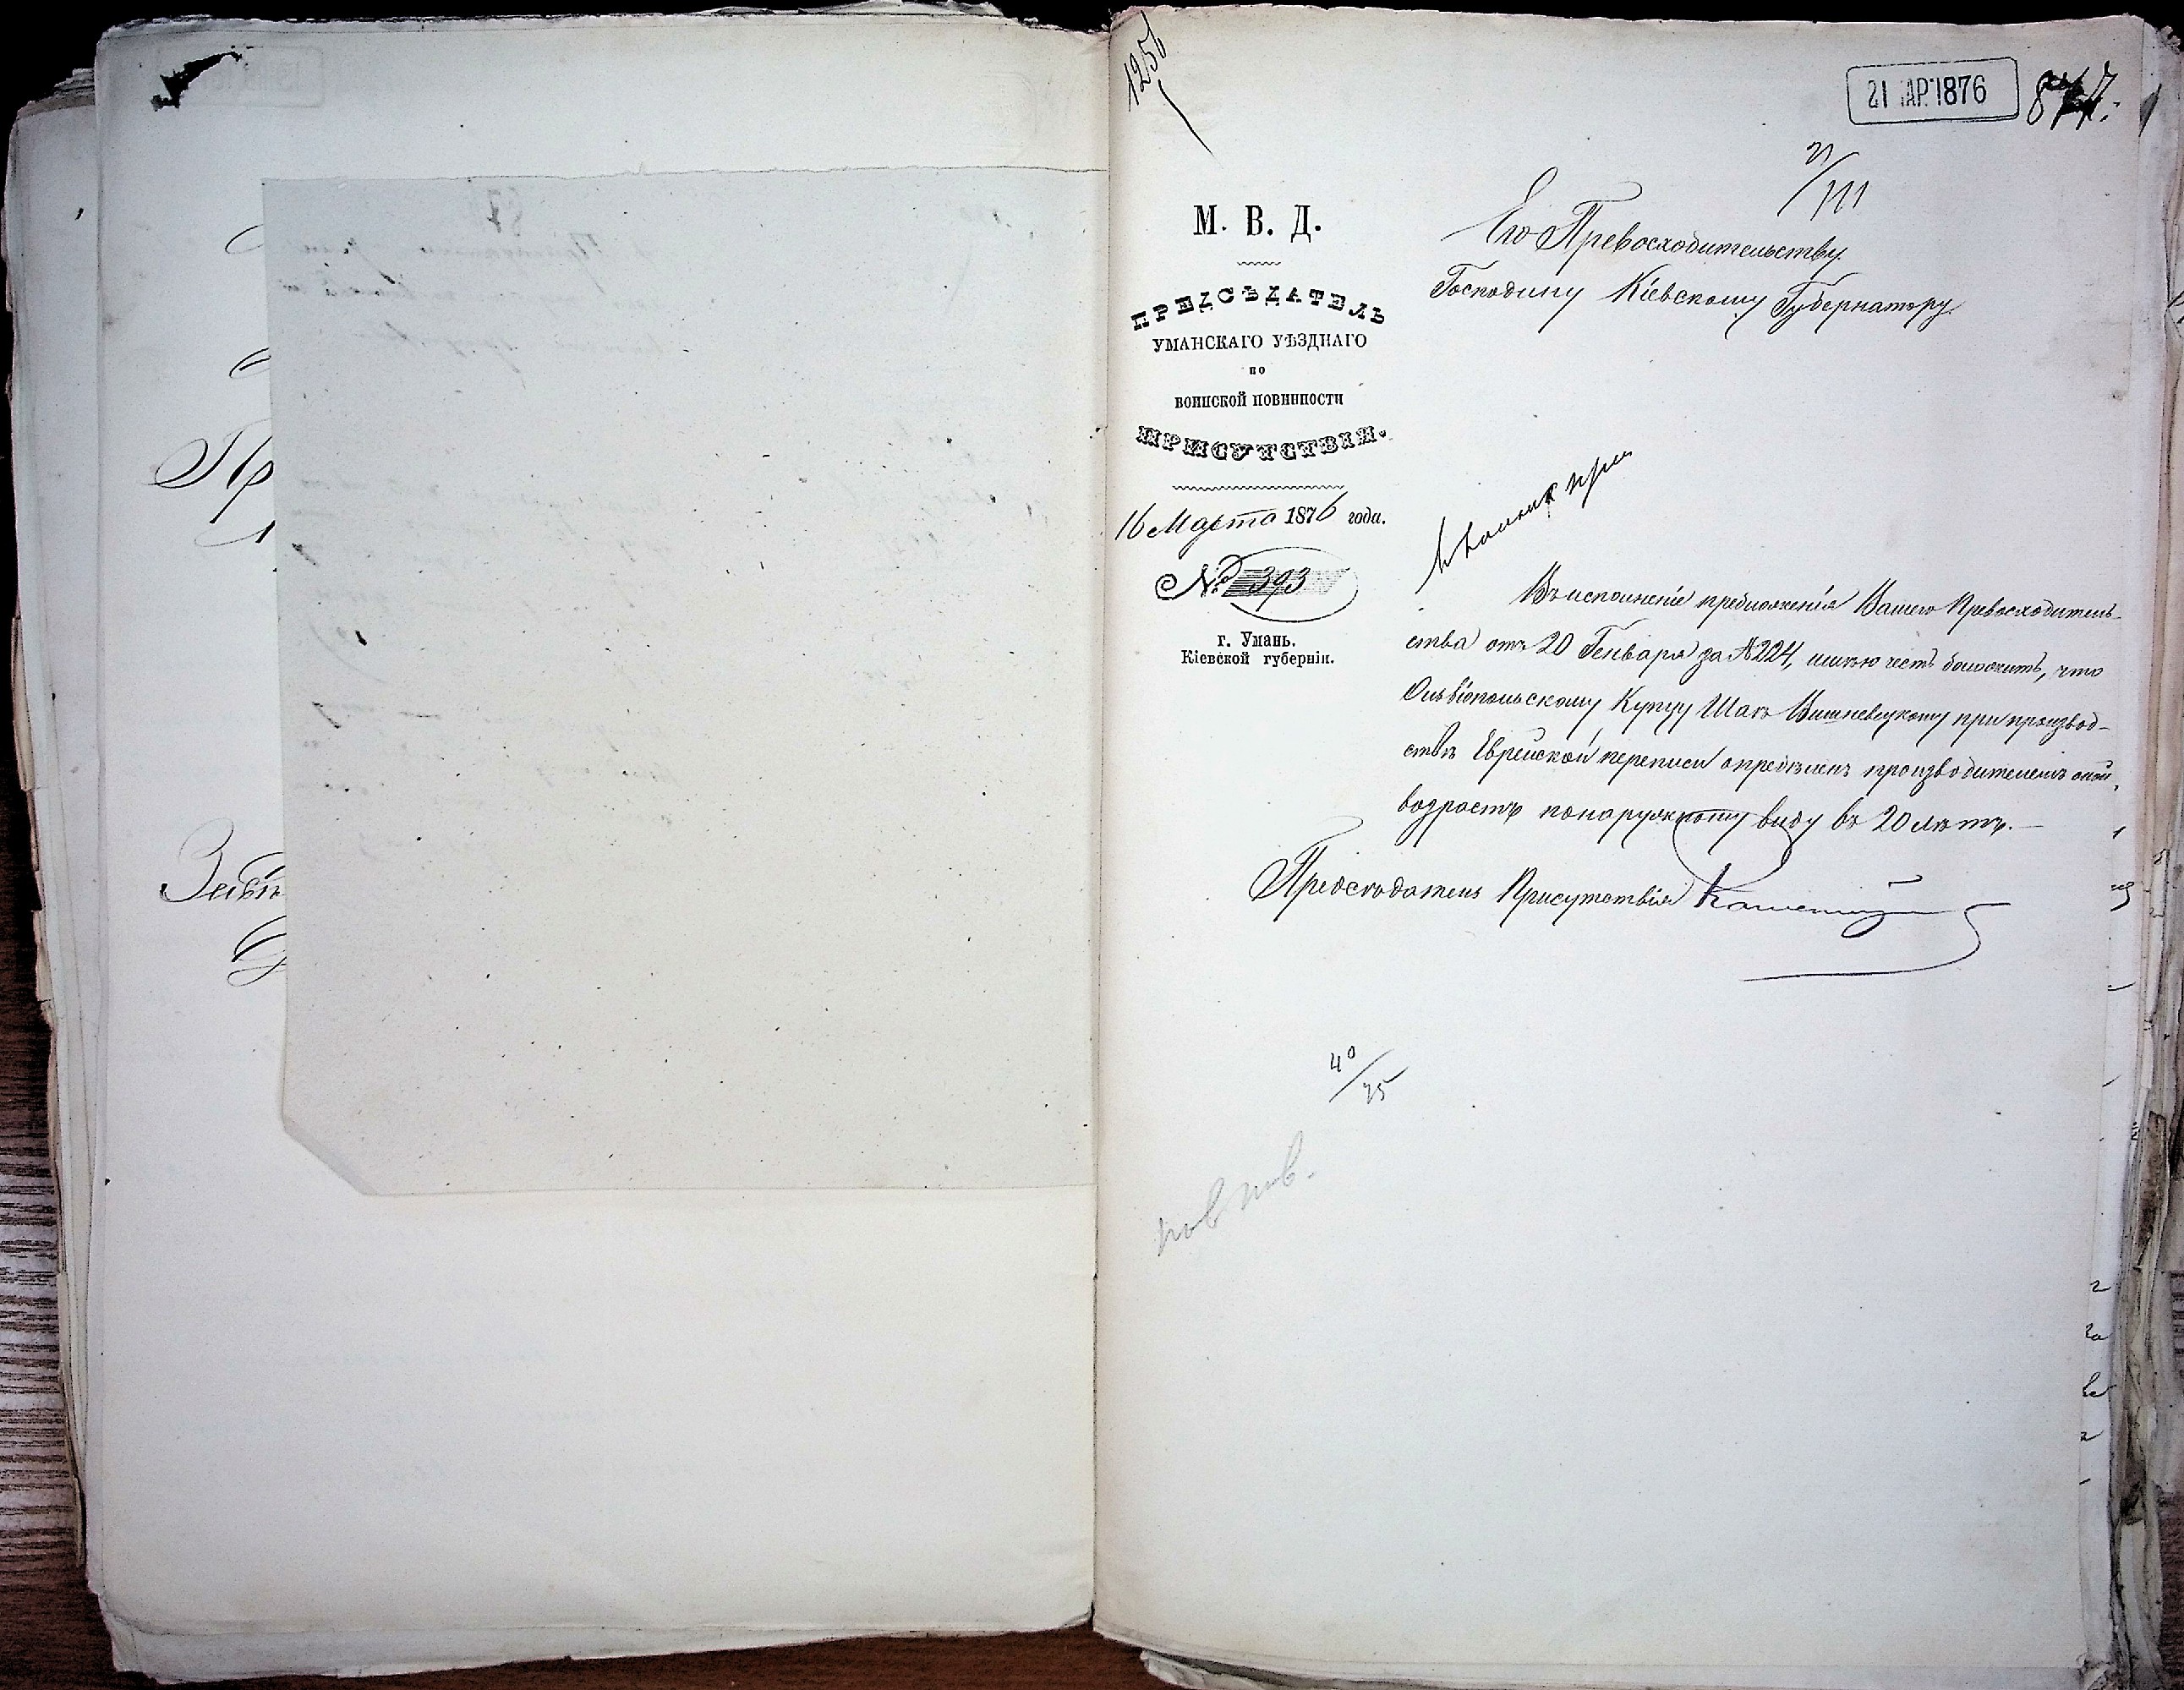 Пр
1256
21 МАР 1876
877.
21/III
М. В. Д.
ПРЕДСѢДАТЕЛЬ
УМАНСКАГО УѢЗДНАГО
по
ВОИНСКОЙ ПОВИННОСТИ
ПРИСУТСТВІЯ.
16 Марта 1876 года.
№ 393
г. Умань.
Кіевской губерніи.
Его Превосходительству
Господину Кіевскому Губернатору.
Въ исполненіе предложенія Вашего Превосходитель-
ства отъ 20 Генваря за № 224, имѣю честь доложить, что
Ольвіопольскому Купцу Шае Вишневецкому при производ-
ствѣ Еврейской переписи опредѣленъ производителемъ оной,
возрастъ по наружному виду въ 20 лѣтъ.—
Предсѣдатель Присутствія
40/75